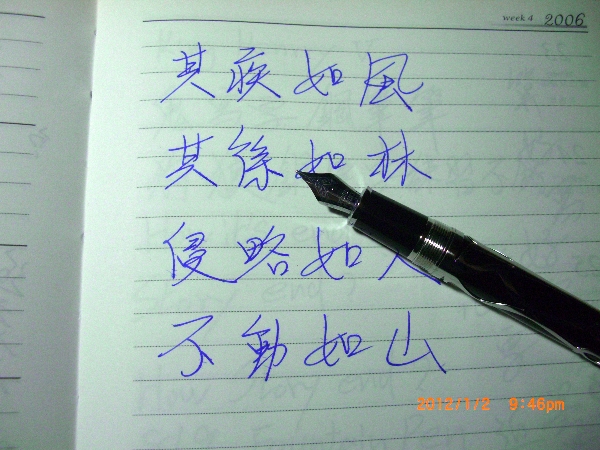 week 4 2006
其疾如風
其徐如林
侵略如
不動如山
2012/1/2 9:46pm